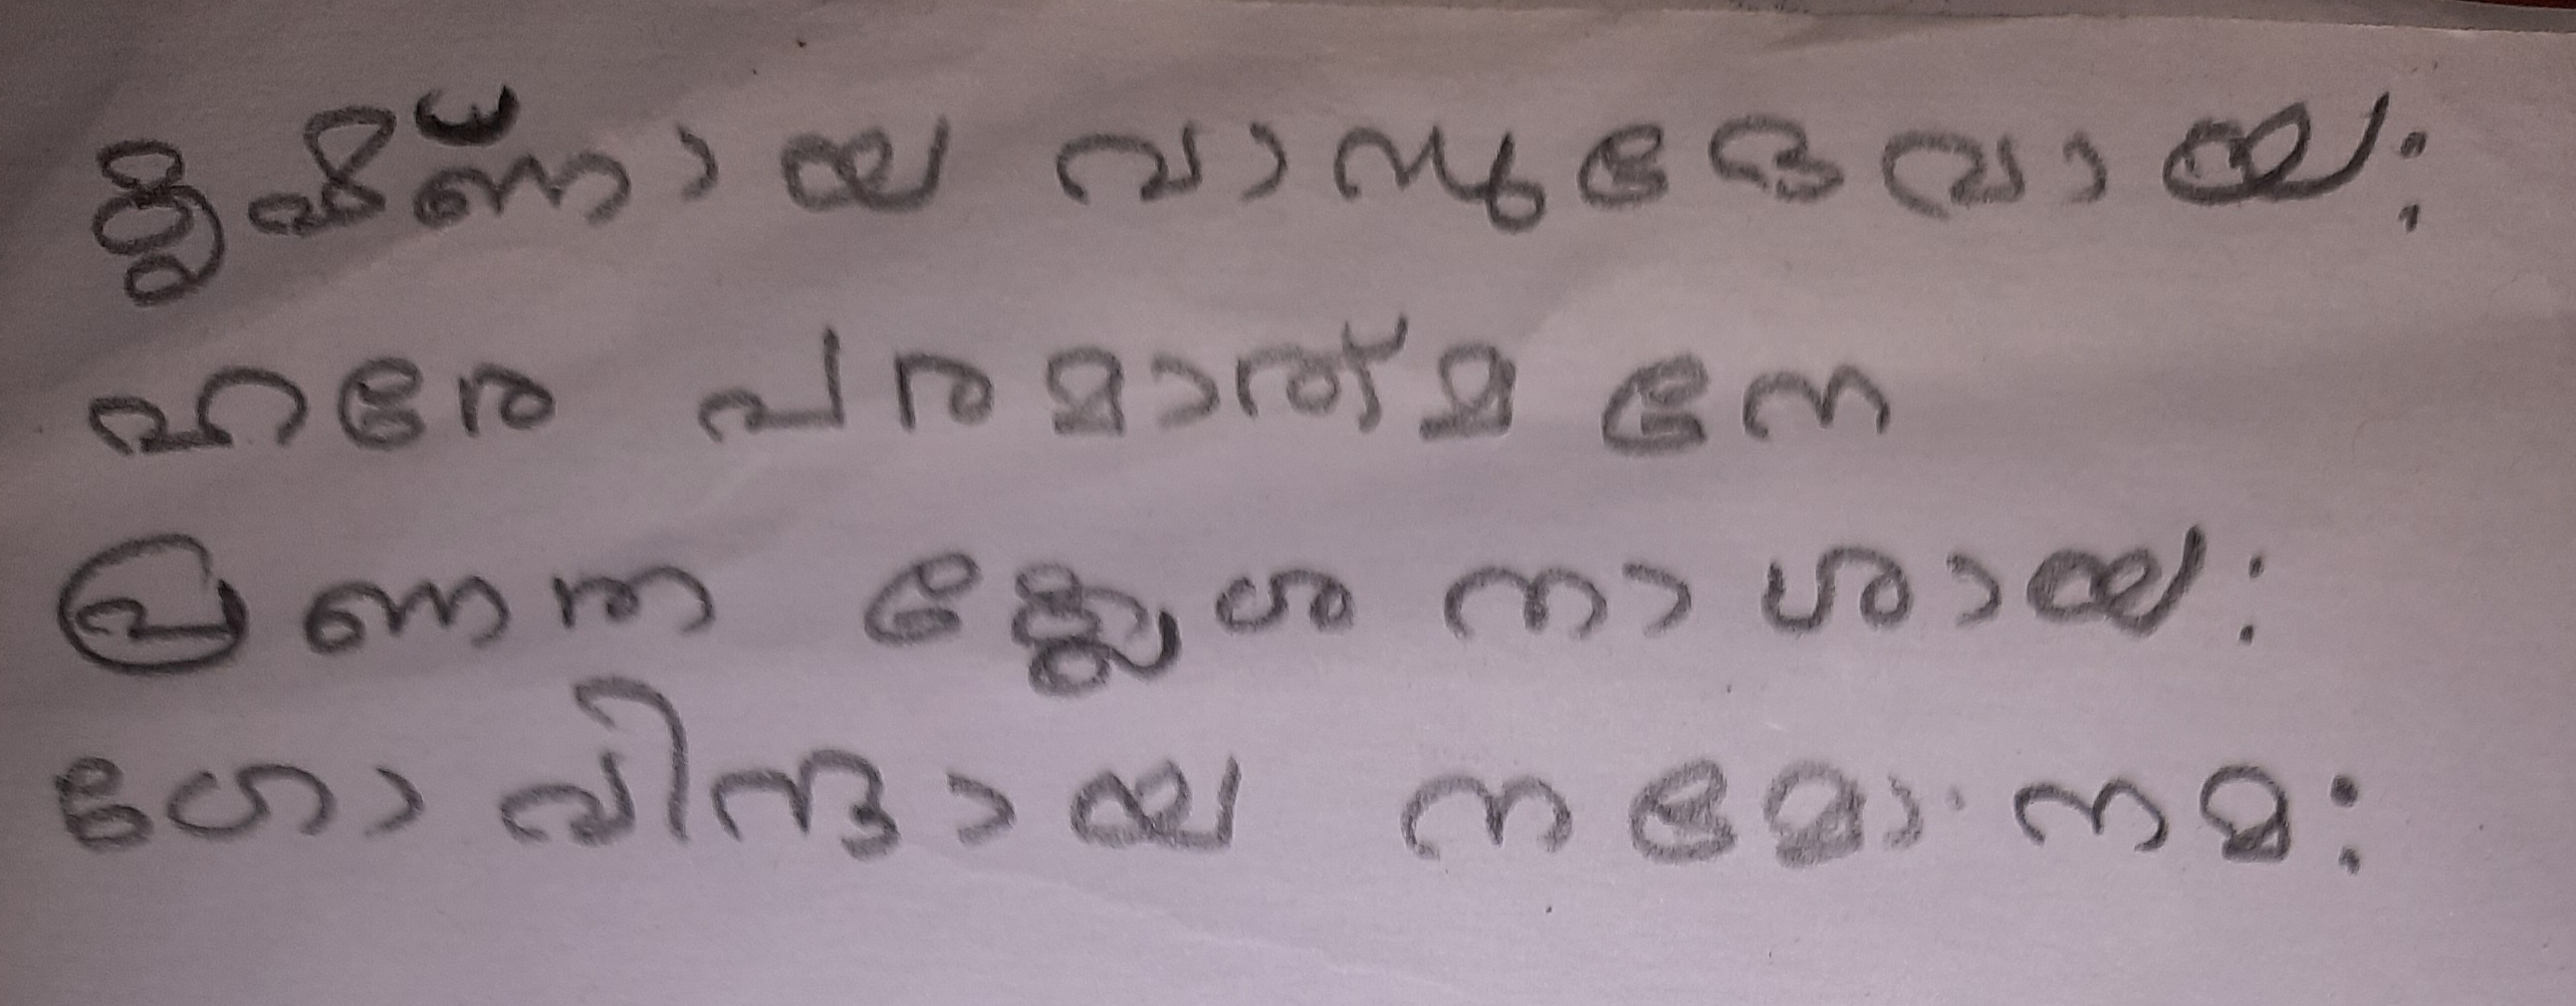 കൃഷ്ണായ വാസുദേവായ:
ഹരേ പരമാത്മനേ
പ്രണത ക്ലേശ നാശായ:
ഗോവിന്ദായ നമോ നമ: